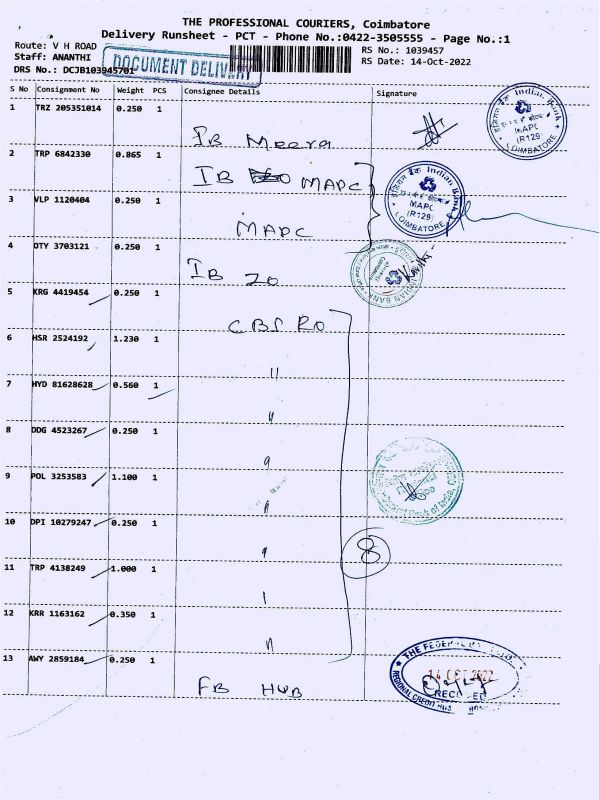 THE PROFESSIONAL COURIERS, Coimbatore
Delivery Runsheet - PCT - Phone No.:0422-3505555 - Page No.:1
Route: V H ROAD
RS No.: 1039457
Staff: ANANTHI
RS Date: 14-Oct-2022
DRS No.: DCJB103945701
DOCUMENT DELIVERY
S No Consignment No Weight PCS Consignee Details Signature
1 TRZ 205351014 0.250 1
IB Meera
Indian Bank
MAPC
(R129)
COIMBATORE
2 TRP 6842330 0.865 1
IB MAPC
Indian Bank
MAPC
(R129)
COIMBATORE
3 VLP 1120404 0.250 1
MAPC
4 OTY 3703121 0.250 1
IB ZO
INDIAN BANK
5 KRG 4419454 0.250 1
CBI RO
6 HSR 2524192 1.230 1
"
7 HYD 81628628 0.560 1
"
8 DDG 4523267 0.250 1
"
9 POL 3253583 1.100 1
"
10 DPI 10279247 0.250 1
"
8
11 TRP 4138249 1.000 1
"
12 KRR 1163162 0.350 1
"
13 AWY 2859184 0.250 1
FB HUB
THE FEDERAL
14 OCT 2022
RECEIVED
REGIONAL CREDIT HUB